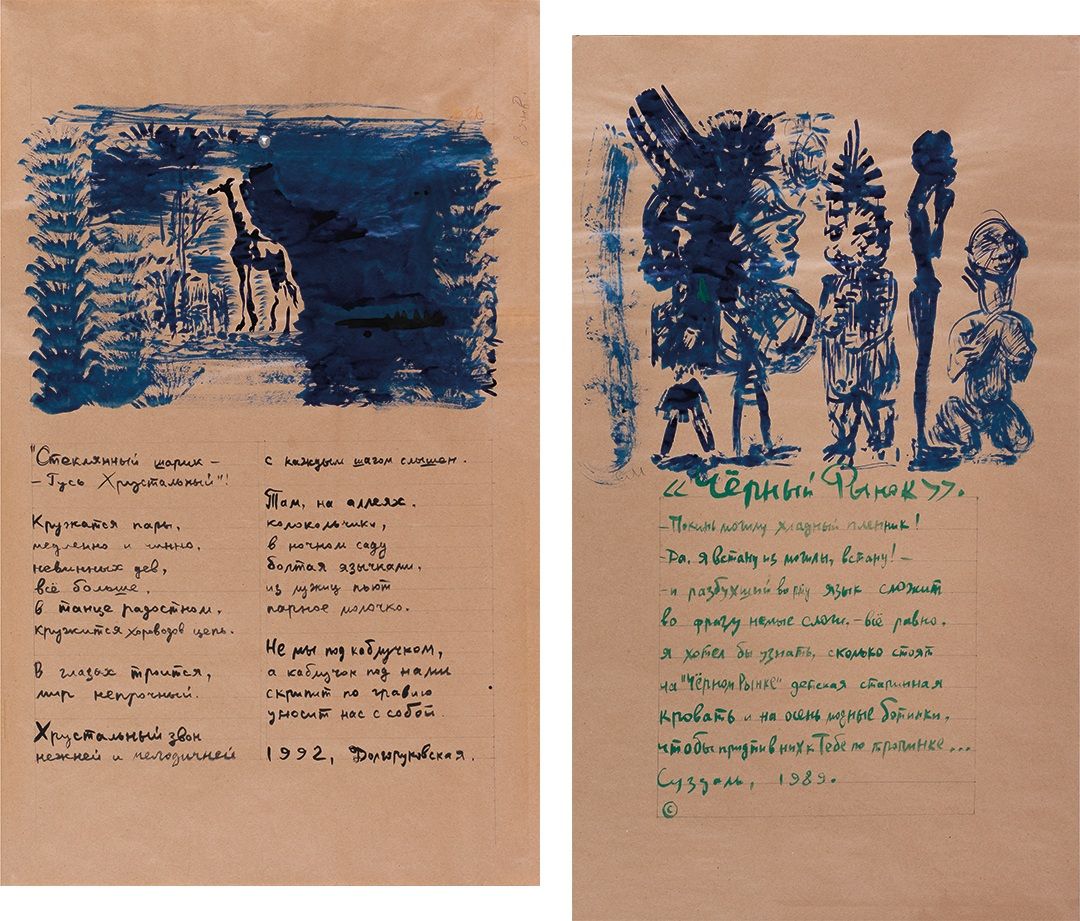 "Стеклянный шарик –
– Гусь Хрустальный"!
Кружатся пары,
медленно и чинно,
невинных дев,
всё больше,
в танце радостном,
кружится хороводов цепь.
В глазах троится,
мир непрочный.
Хрустальный звон
нежней и мелодичней
с каждым шагом слышен.
Там, на аллеях,
колокольчики,
в ночном саду
болтая язычками,
из лужиц пьют
парное молочко.
Не мы под каблучком,
а каблучок под нами
скрипит по гравию
уносит нас с собой.
1992, Долгоруковская.
«Чёрный Рынок».
– Покинь могилу хладный пленник!
– Да, я встану из могилы, встану! –
– и разбухший во рту язык сложит
во фразу немые слоги. – всё равно.
я хотел бы узнать, сколько стоят
на "Чёрном Рынке" детская старинная
кровать и на осень модные ботинки,
чтобы придти в них к Тебе по тропинке...
Суздаль, 1989.
©